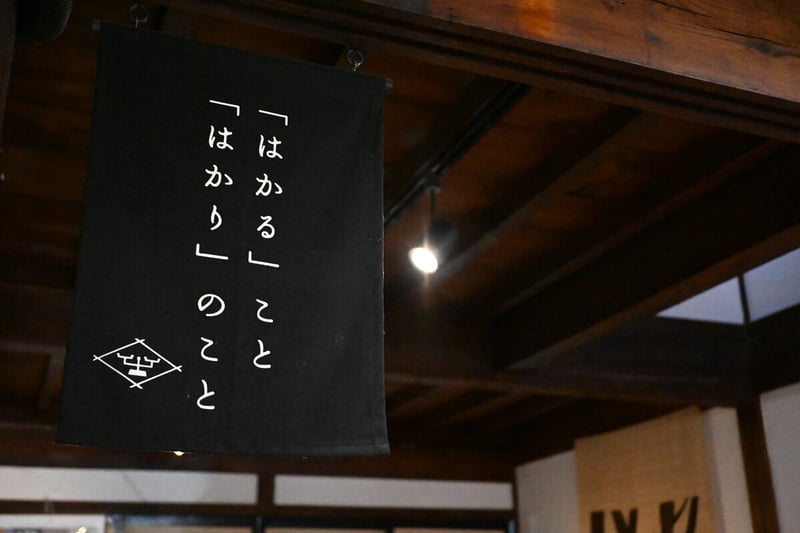 「はかる」こと
「はかり」のこと